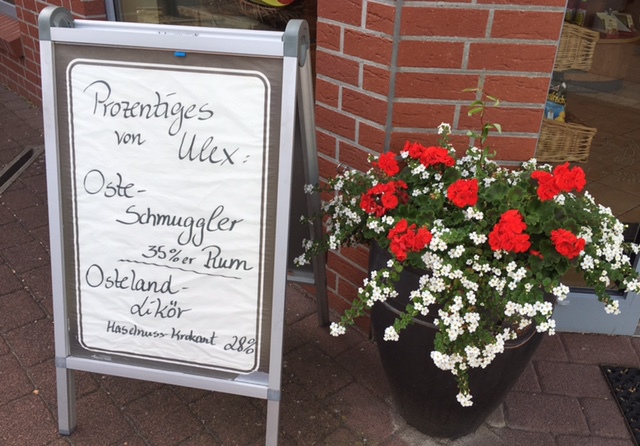 Prozentiges
von Ulex:
Oste-
Schmuggler
35%er Rum
Osteland-
Likör
Haselnuss Krokant 28%